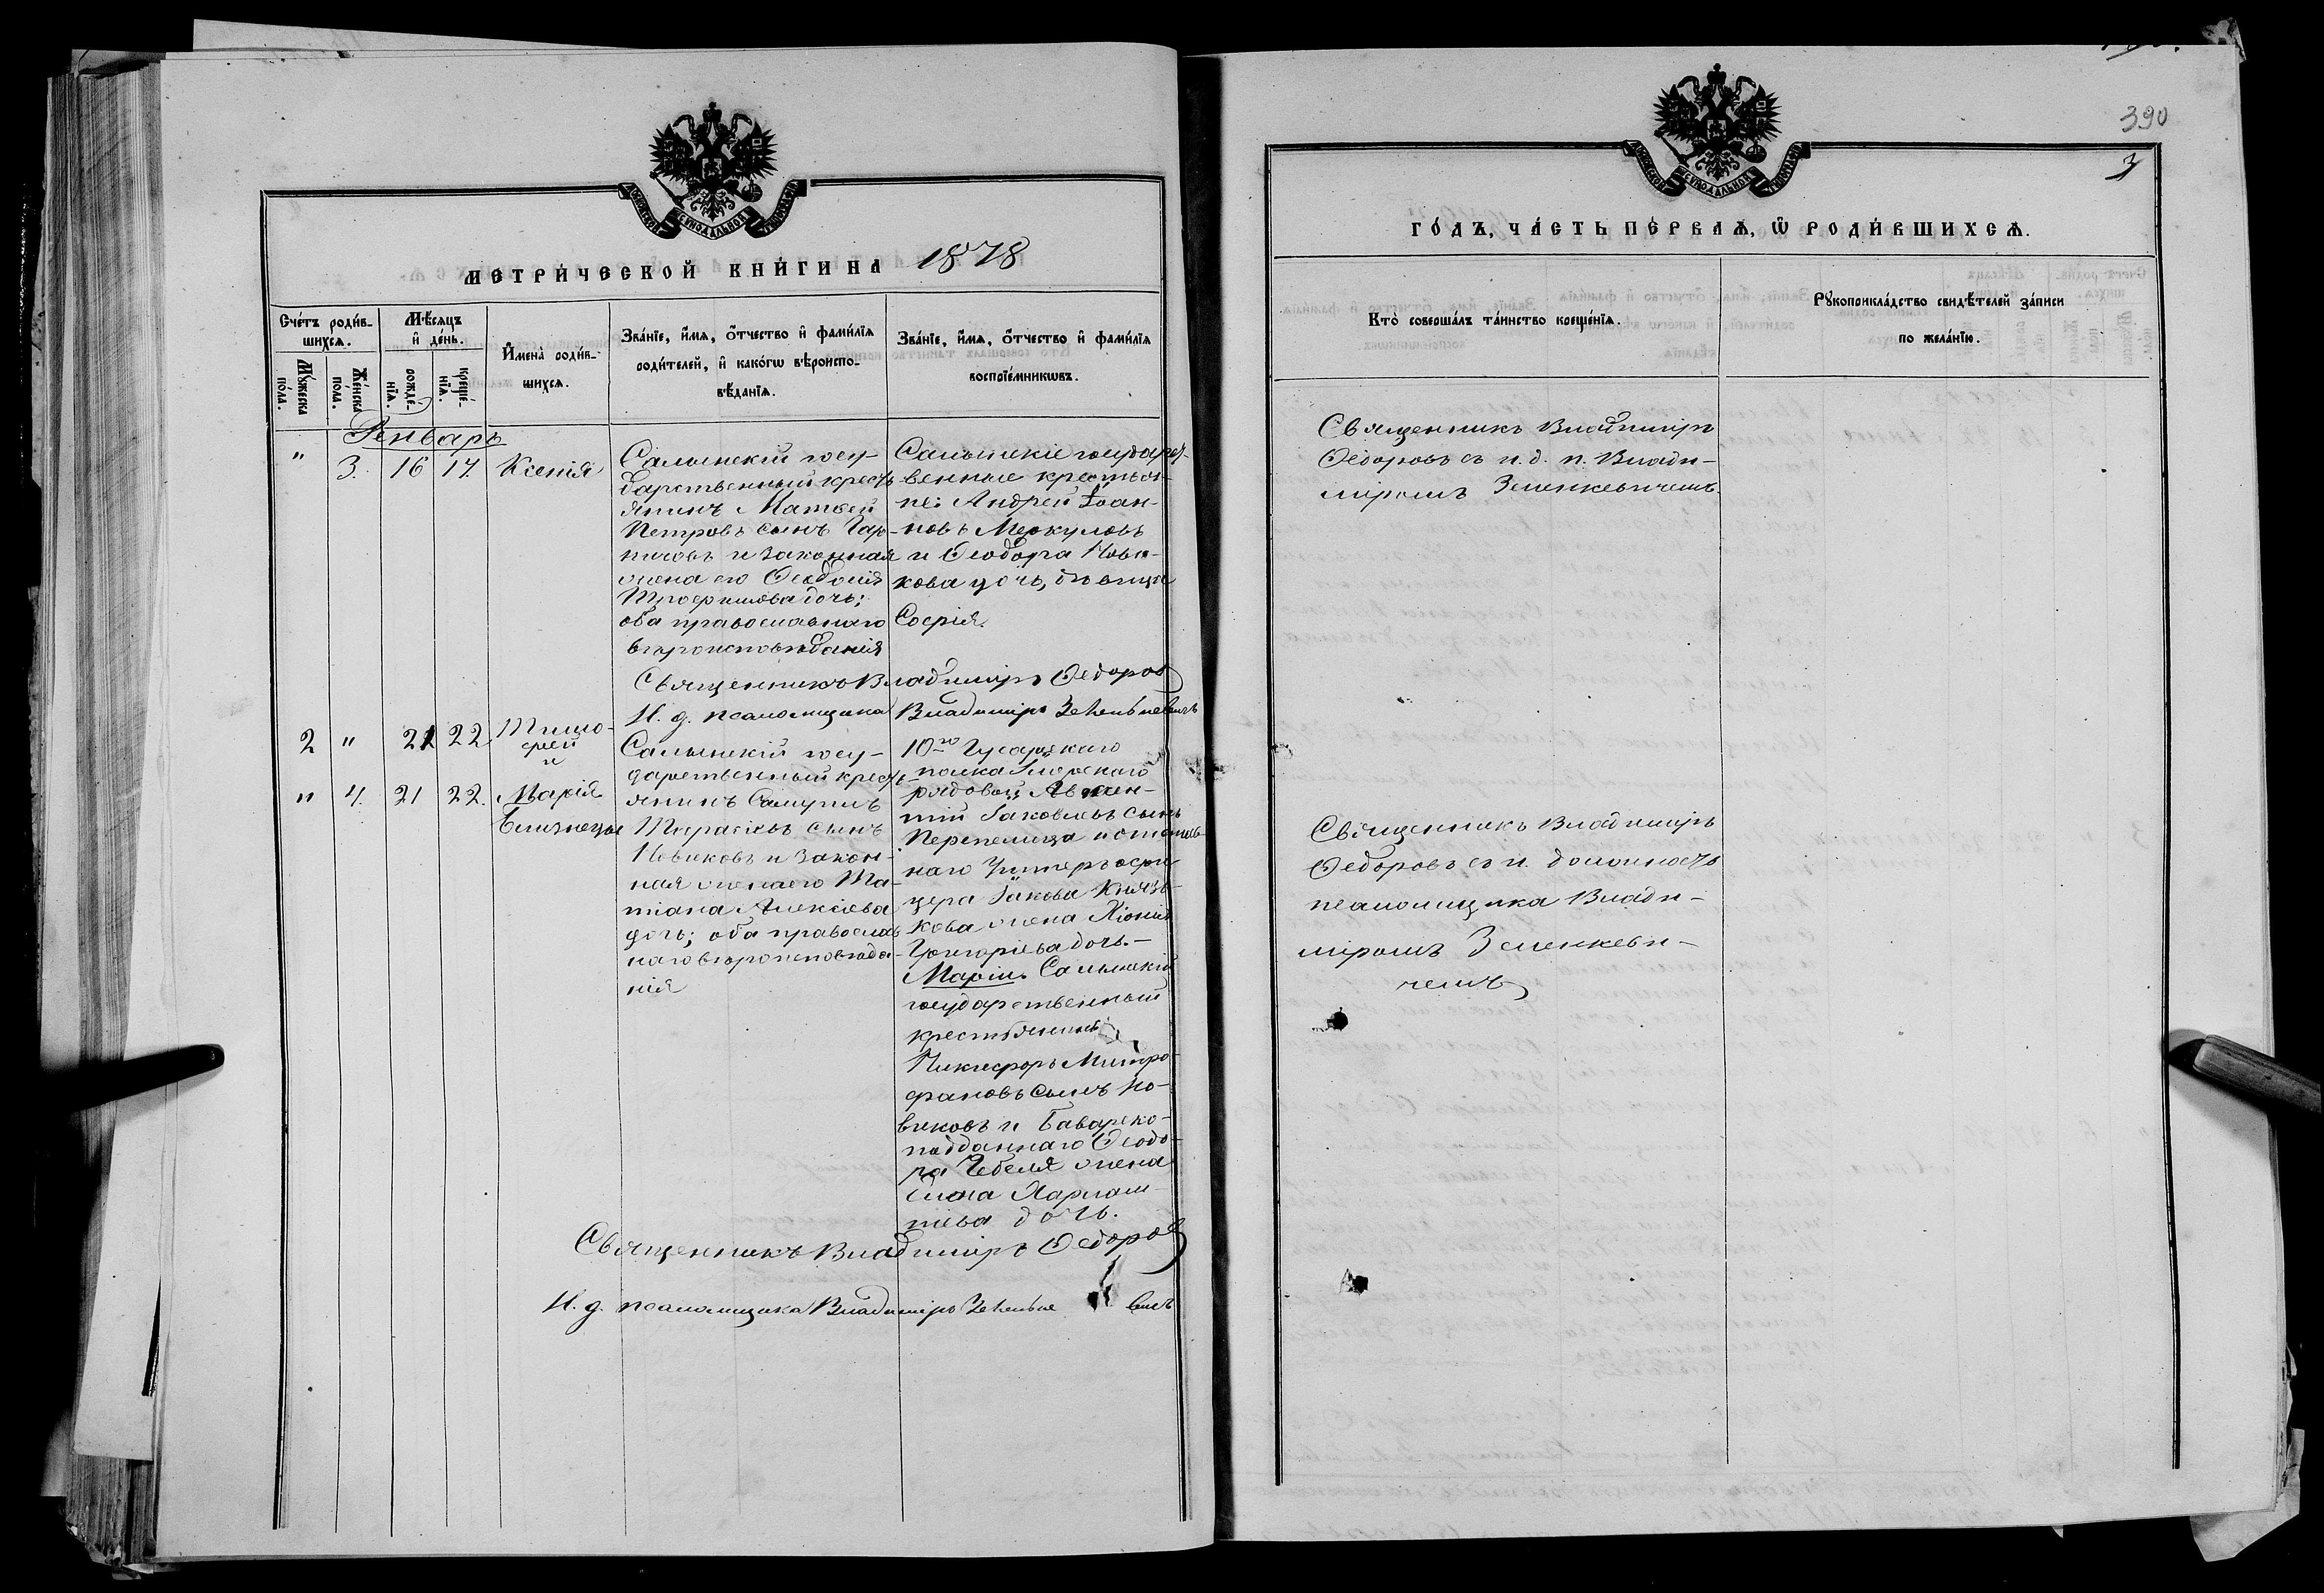 МЕТРИЧЕСКОЙ КНИГИ НА 1878
Счетъ родив-
шихся.
Мужеска пола.
Женска пола.
Мѣсяцъ и день.
рожде-
нія.
креще-
нія.
Имена родив-
шихся.
Званіе, имя, отчество и фамилія
родителей, и какогѡ вѣроиспо-
вѣданія.
Званіе, имя, отчество и фамилія
воспріемникѡвъ.
Январь
" 3. 16 17. Ксенія
Салынскій госу-
дарственный кресть
янинъ Матвей
Петровъ сынъ Гар-
и законная
жена его Феодосія
Трофимова дочь;
оба православнаго
вѣроисповѣданія
Салынскіе государст-
венные крестьян-
не: Андрей Іоан-
новъ Меркуловъ
и Феодора Нови-
кова дочь, дѣвица
Софія.
Священникъ Владиміръ Федоров
И. д. псаломщика Владиміръ Зеленкевичъ
2 " 21 22. Тимо-
фей
и
" 4. 21 22. Марія
Близнецы
Салынскій госу-
дарственный кресть-
янинъ Самуилъ
Тарасіевъ сынъ
Новиковъ и закон-
ная жена его Та-
тіана Алексіева
дочь; оба православ
наго вѣроисповѣда-
нія
10го Гусарскаго
полка
рядовой Авксен-
тій Іаковлевъ сынъ
Перепелица и отстав-
наго Унтеръ офи-
цера Іакова Князь-
кова жена Хіонія
Григоріева дочь.-
Маріи. Салынскій
государственный
крестьянинъ
Никифоръ Митро-
фановъ сынъ Но-
виковъ и Баварско-
подданнаго Феодо-
ра Гебеля жена
Елена Харлам-
піева дочь.
Священникъ Владиміръ Федоров
И. д. псаломщика Владиміръ Зеленке вичъ
390
3
ГОДЪ, ЧАСТЬ ПЕРВАЯ, Ѡ РОДИВШИХСЯ.
Кто совершалъ таинство крещенія.
Рꙋкоприкладство свидѣтелей записи
по желанію.
Священникъ Владиміръ
Федоровъ съ и. д. п. Влади-
міромъ Зеленкевичемъ.
Священникъ Владиміръ
Федоровъ съ и. должность
псаломщика Влади-
міромъ Зеленкеви-
чемъ